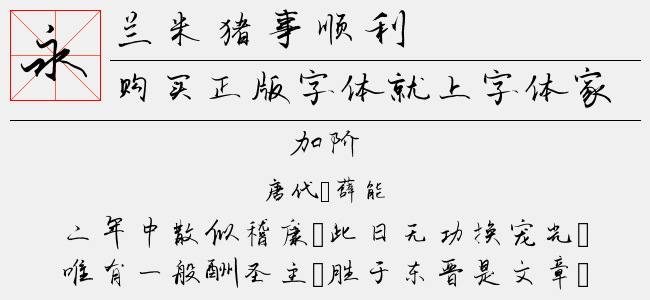 永
兰米猪事顺利
购买正版字体就上字体家
加阶
唐代□薛能
二年中散似稽康□此日无功换宠光□
唯有一般酬圣主□胜于东晋是文章□